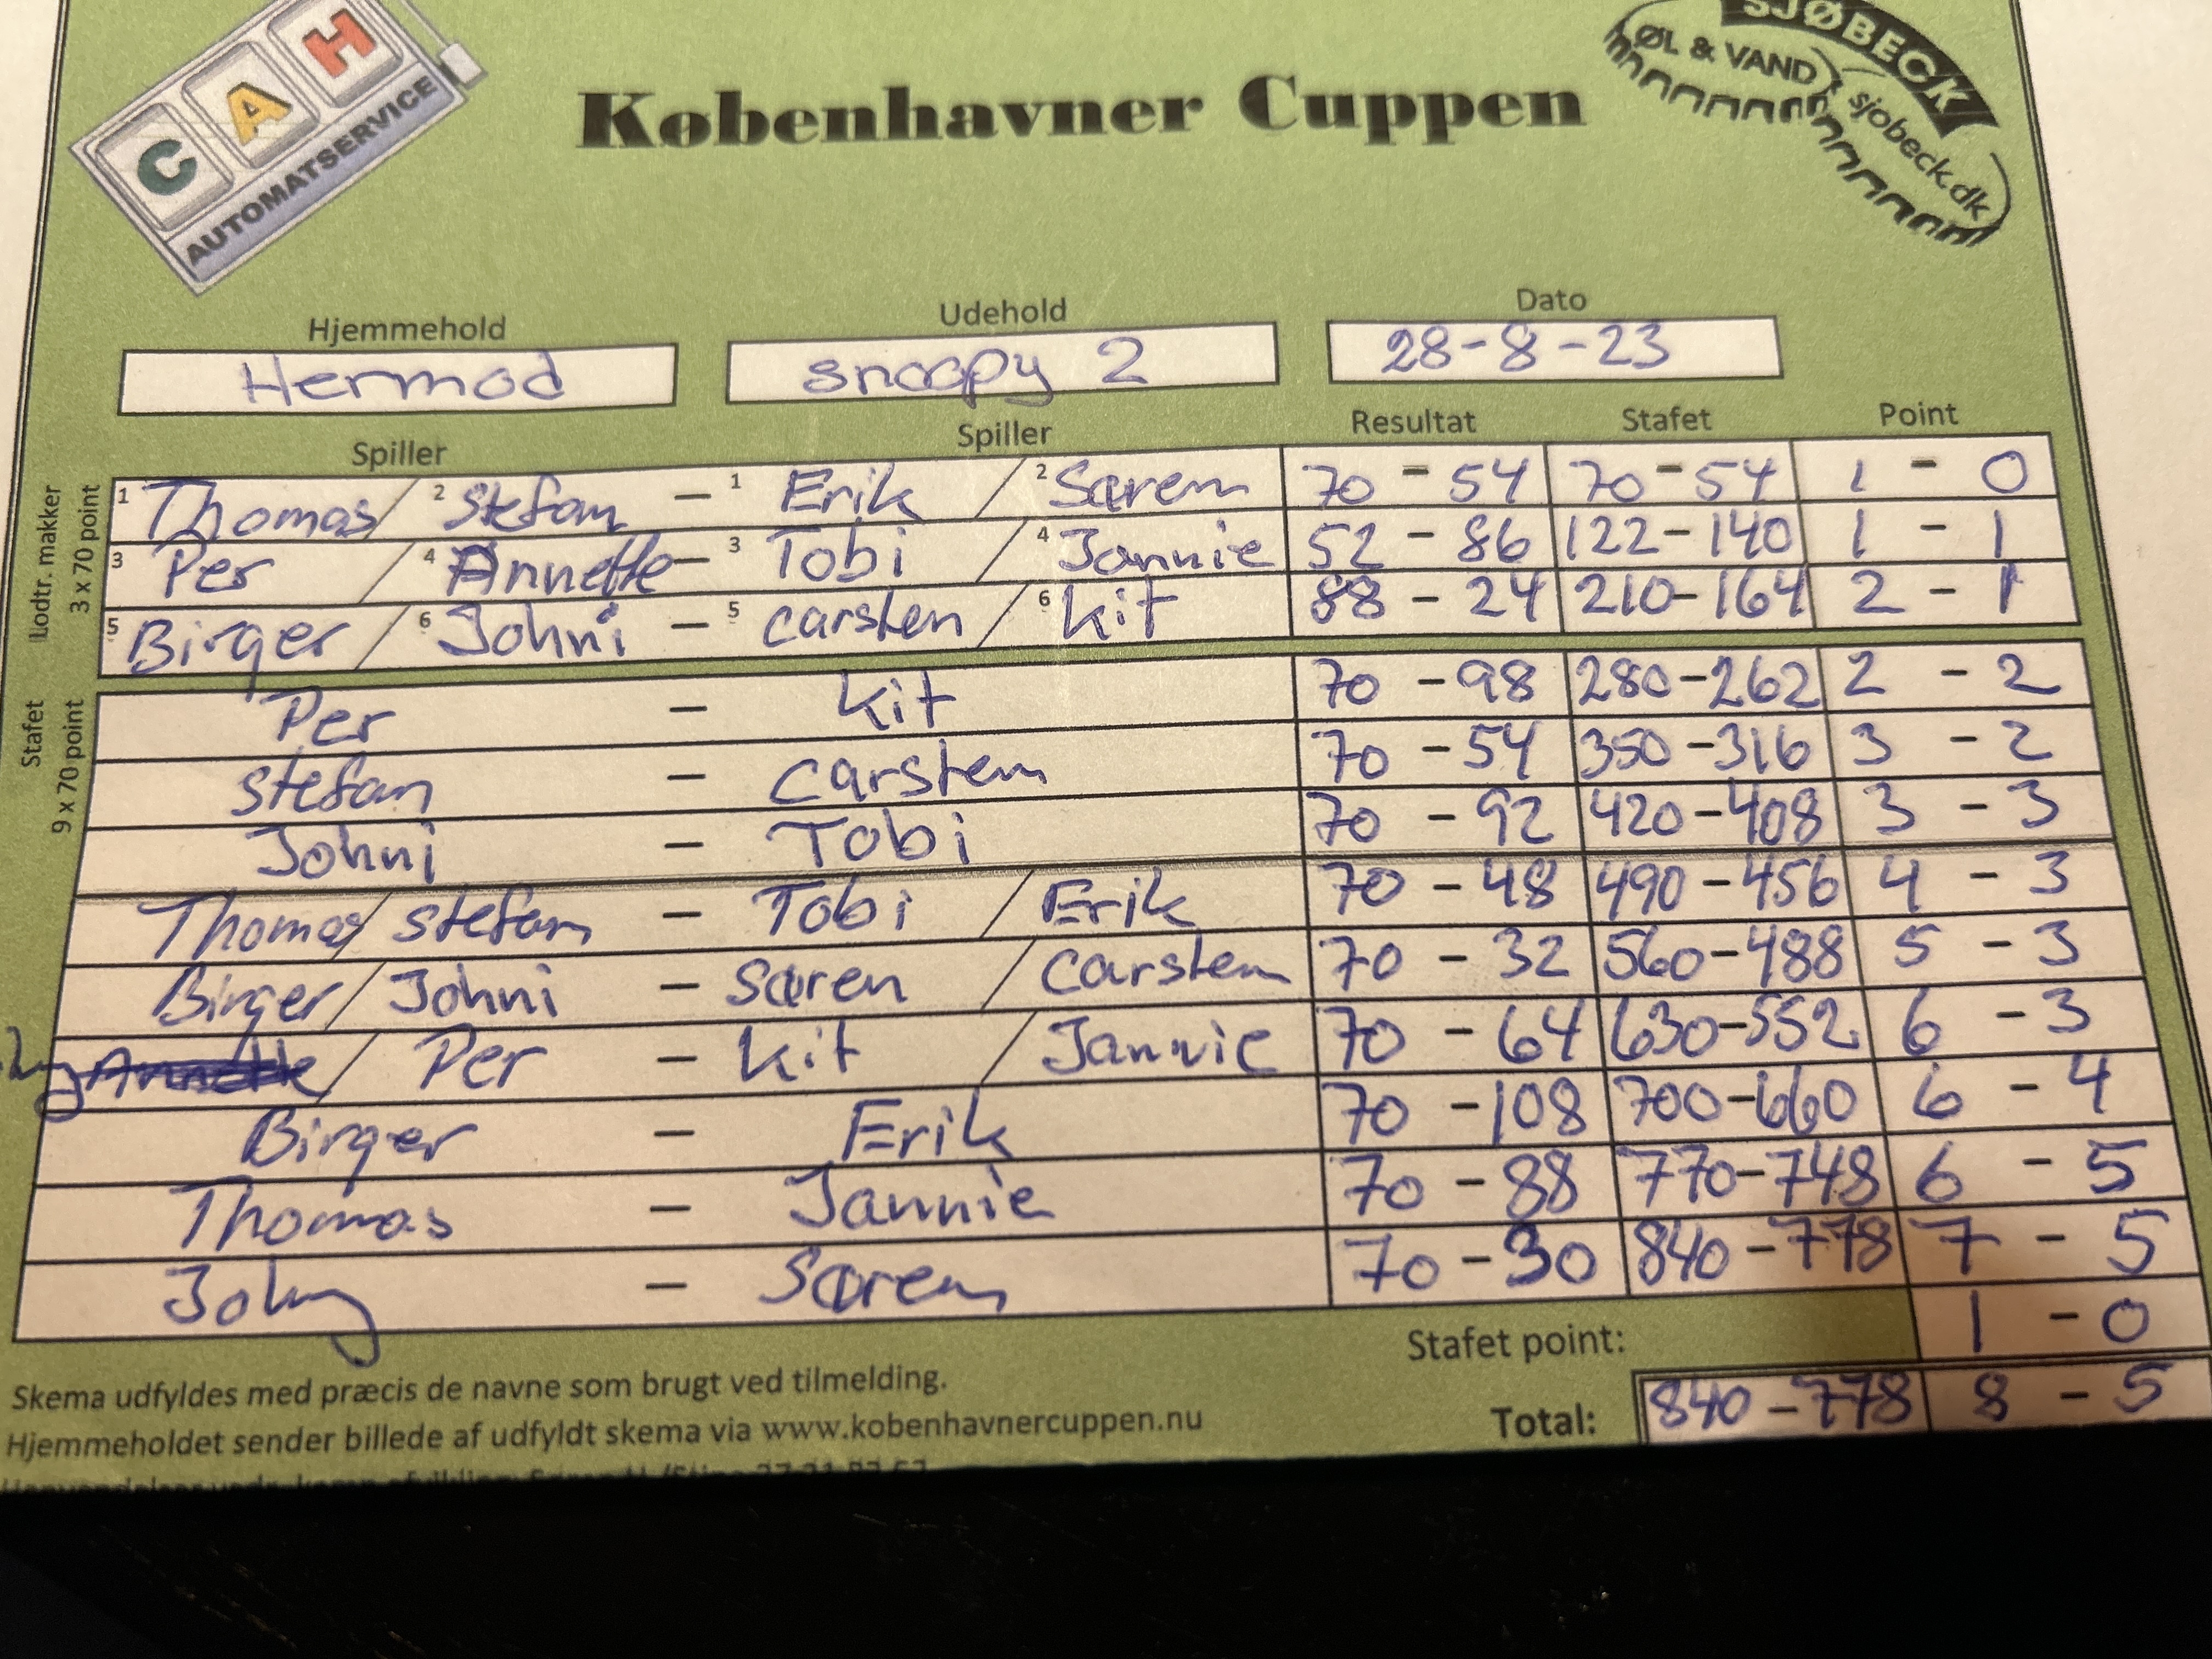 CAH
AUTOMATSERVICE
Københavner Cuppen
SJØBECK
ØL & VAND
sjobeck.dk
Hjemmehold Udehold Dato
Hermod snoopy 2 28-8-23
Spiller Spiller Resultat Stafet Point
Lodtr. makker
3 x 70 point
1 Thomas / 2 Stefan - 1 Erik / 2 Søren 70 - 54 70 - 54 1 - 0
3 Per / 4 Annette - 3 Tobi / 4 Jannie 52 - 86 122 - 140 1 - 1
5 Birger / 6 Johni - 5 carsten / 6 kit 88 - 24 210 - 164 2 - 1
Stafet
9 x 70 point
Per - kit 70 - 98 280 - 262 2 - 2
stefan - carsten 70 - 54 350 - 316 3 - 2
Johni - Tobi 70 - 92 420 - 408 3 - 3
Thomas / stefan - Tobi / Erik 70 - 48 490 - 456 4 - 3
Birger / Johni - søren / carsten 70 - 32 560 - 488 5 - 3
Annette / Per - kit / Jannie 70 - 64 630 - 552 6 - 3
Birger - Erik 70 - 108 700 - 660 6 - 4
Thomas - Jannie 70 - 88 770 - 748 6 - 5
Johny - Søren 70 - 30 840 - 778 7 - 5
Stafet point: 1 - 0
Total: 840 - 778 8 - 5
Skema udfyldes med præcis de navne som brugt ved tilmelding.
Hjemmeholdet sender billede af udfyldt skema via www.kobenhavnercuppen.nu